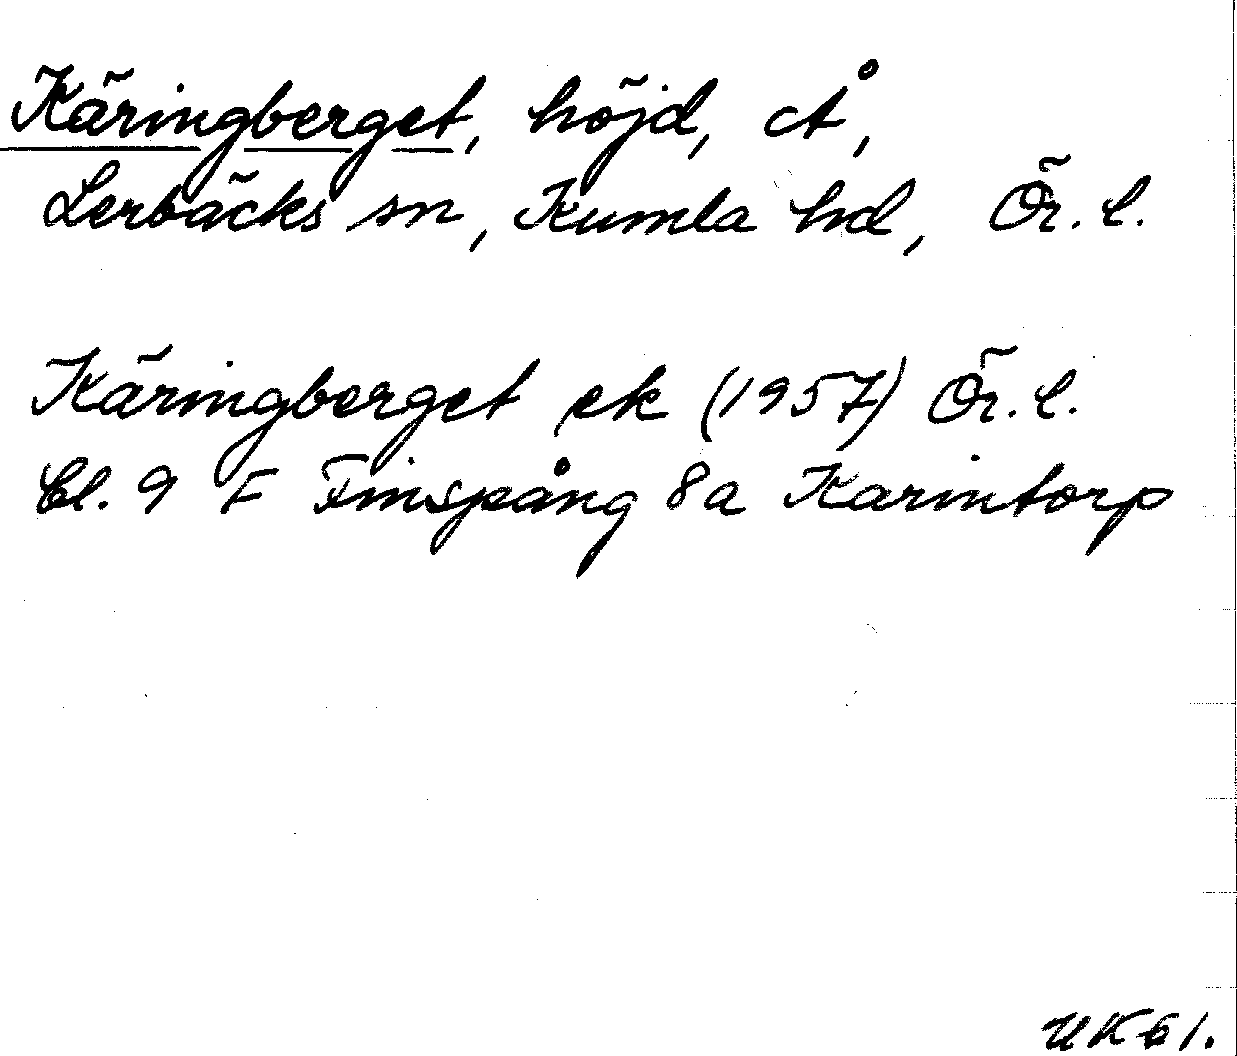 Käringberget, höjd, Å,
Lerbäcks sn, Kumla hd, Ör. l.
Käringberget ek (1957) Ör. l.
Bl. 9 F Finspång 8a Karintorp
UK61.